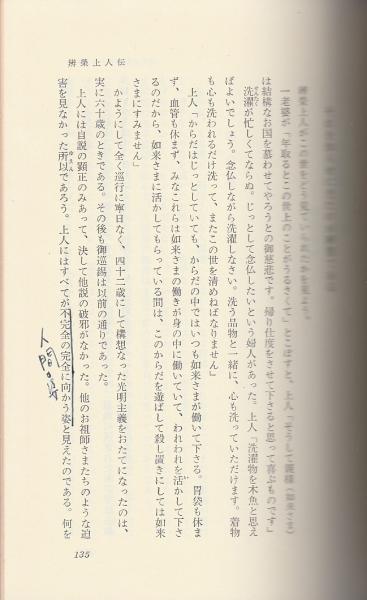 辨榮上人伝
辨榮上人がこの世をどう見ていられたかを見よう。
一老婆が「年取るとこの世上のことがうるさくて」とこぼすと、上人「そうして親様(如来さま)
は結構なお国を慕わせてやろうとの御慈悲です。帰り住度をさせて下さると思って喜ぶものです」
洗濯が忙しくてならぬ。じっとして念仏したいという婦人があった。上人「洗濯物を木魚と思え
ばよいでしょう。念仏しながら洗濯しなさい。洗う品物と一緒に、心も洗っていただけます。着物
も心も洗われるだけ洗って、またこの世を清めねばなりません」
上人「からだはじっとしていても、からだの中ではいつも如来さまが働いて下さる。胃袋も休ま
ず、血管も休まず、みなこれらは如来さまの働きが身の中に働いていて、われわれを活かして下さ
るのだから、如来さまに活かしてもらっている間は、このからだを遊ばして殺し置きにしては如来
さまにすみません」
かようにして全く巡行に寧日なく、四十二歳にして構想なった光明主義をおたてになったのは、
実に六十歳のときである。その後も御巡錫は以前の通りであった。
上人には自説の顕正のみあって、決して他説の破邪がなかった。他のお祖師さまたちのような迫
害を見なかった所以であろう。上人にはすべてが不完全の完全に向かう姿と見えたのである。何を
人間の姿
135